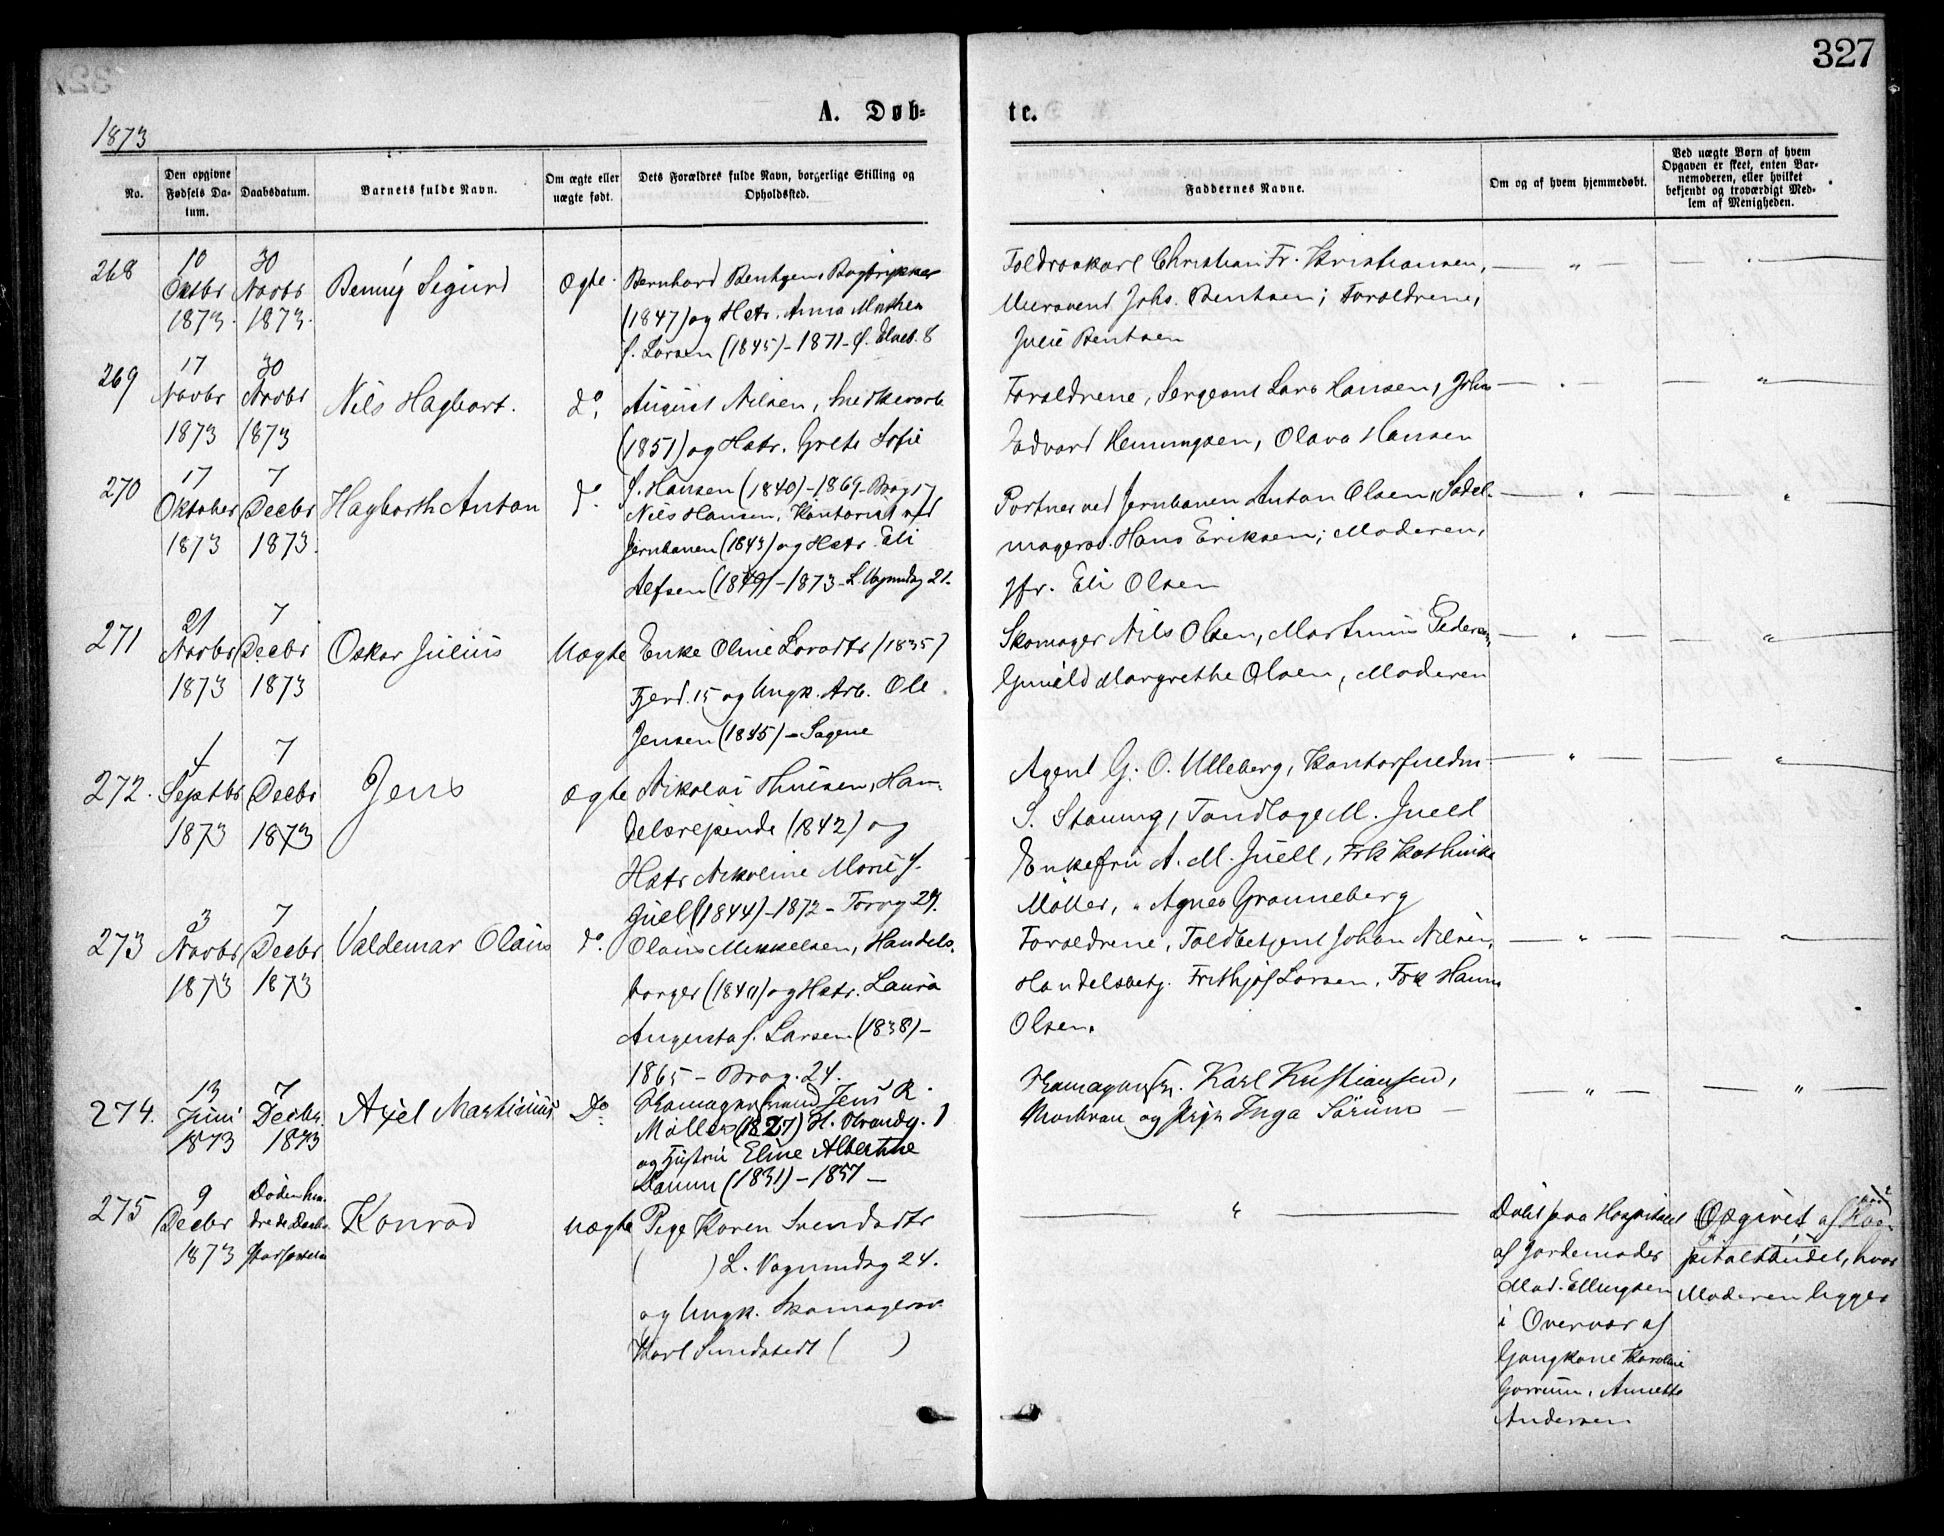 327
A. Døb-
te.
1873
No.
Den opgivne Fødsels Da-tum.
Daabsdatum.
Barnets fulde Navn.
Om ægte eller uægte født.
Dets Forældres fulde Navn, borgerlige Stilling og Opholdssted.
Faddernes Navne.
Om og af hvem hjemmedøbt.
Ved uægte Børn af hvem Opgaven er skeet, enten Bar-nemoderen, eller hvilket bekjendt og troværdigt Med-lem af Menigheden.
268
10 Oktbr 1873.
30 Novbr 1873.
Benny Sigurd
Ægte.
Bernhard Bentzen, Bogtrykker
(1847) og Hstr. Anna Mathea
f. Larsen (1845) - 1871 - Ø. Elveb. 8
Christian Fr. Kristiansen,
Mursvend Johs. Bentsen; Foraldrene,
Julie Bentsen
269
17 Novbr 1873
30 Novbr 1873
Nils Hagbart.
do.
August Nilsen, Snedkerarb
(1851) og Hstr. Grete Sofie
f. Hansen (1840) - 1869 - Brog 17
Foraldrene, Sergeant Lars Hansen, John
Edvard Hemmingsen, Olava Hansen
270
17 Oktober 1873
7 Decbr 1873.
Hagbarth Anton
do
Nils Hansen, Kontorist ved
Jernbanen (1843) og Hstr. Eli
Alfsen (1849) - 1873 - L. Vognmdsg 21.
Portner ved Jernbanen Anton Olsen, Sadel-
magersv. Hans Eriksen; Moderen,
Jfr. Eli Olsen
271
21 Novbr 1873
7 Decbr 1873
Oskar Julius
Uægte
Enke Oline (1835)
Fjerd. 15 og Ungk. Arb. Ole
Jensen (1845) - Sagene
Skomager Nils Olsen, Martinus Pedersen,
Gunild Margrethe Olsen, Moderen
272.
4 Septbr 1873
7 Decbr 1873
Jens
Ægte
Nikolai Thuesen, Han-
delsrejsende (1842) og
Hstr Nikoline Marie f.
Juell (1844) - 1872 - Torvg 29.
Agent G. O. Ulleberg, Kontorfuldm.
S. Staung, Tandlage M. Juell
Enkefru A. M. Juell, Frk Kathinka
Møller, " Agnes Granneberg
273
3 Novbr 1873
7 Decbr 1873
Valdemar Olaus
do.
Olaus Mikkelsen, Handels-
borger (1840) og Hstr. Laura
Augusta f. Larsen (1838) -
1865 - Brog. 24.
Foraldrene, Toldbetjent Johan Nilsen,
Handelsbetj. Frithjof Larsen, Frk Hanna
Olsen.
274.
13 Juni 1873
7 Decbr. 1873
Axel Martinius
Do.
Skomagersvend Jens R.
Møller (1827) H. Strandg. 1
og Hustru Eline Albertine
Damm (1831) - 1857 -
Skomagersv. Karl Kristiansen,
Modrene og Pigen Inga Sørum -
275
9 Decbr 1873
Døden hin-
drede Daabs-
Konrad
Uægte
Pige Karen Svendsdtr
( ) L. Vognmdsg 24.
og Ungk. Skomagersv.
Karl Sundstedt ( )
Døbt paa Hospitalet
af Jordemoder
Mad. Ellingsen
i Overvær af
Gangkone Karoline
Annette
Andersen
Opgivet af Hos-
pitalsbudet, hvor
Moderen ligger